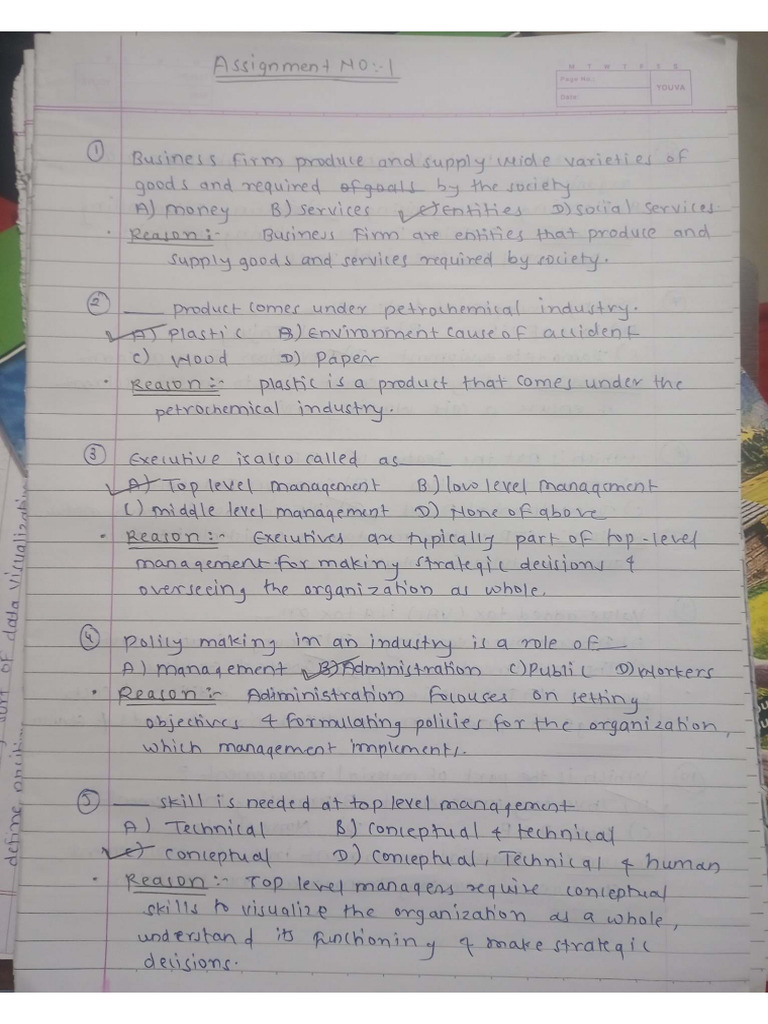 Assignment NO:- 1
M T W T F S S
Page No.:
Date:
YOUVA
① Business Firm produce and supply wide varieties of
goods and required of goals by the society
A) money B) services C) entities D) social services.
• Reason :- Business Firm are entities that produce and
supply goods and services required by society.
② ___ product comes under petrochemical industry.
A) Plastic B) Environment cause of accident
C) Wood D) Paper
• Reason :- plastic is a product that comes under the
petrochemical industry.
③ Executive is also called as ___
A) Top level management B.) low level management
C) middle level management D) None of above
• Reason :- Executives are typically part of top-level
management for making strategic decisions &
overseeing the organization as whole.
④ Policy making in an industry is a role of __
A) management B) Administration C) Public D) Workers
• Reason :- Adiministration focouses on setting
objectives & formulating policies for the organization,
which management implements.
⑤ ___ skill is needed at top level management
A) Technical B) Conceptual & technical
C) conceptual D) Conceptual, Technical & human
• Reason :- Top level managers require conceptual
skills to visualize the organization as a whole,
understand its functioning & make strategic
decisions.
of data visualization
define